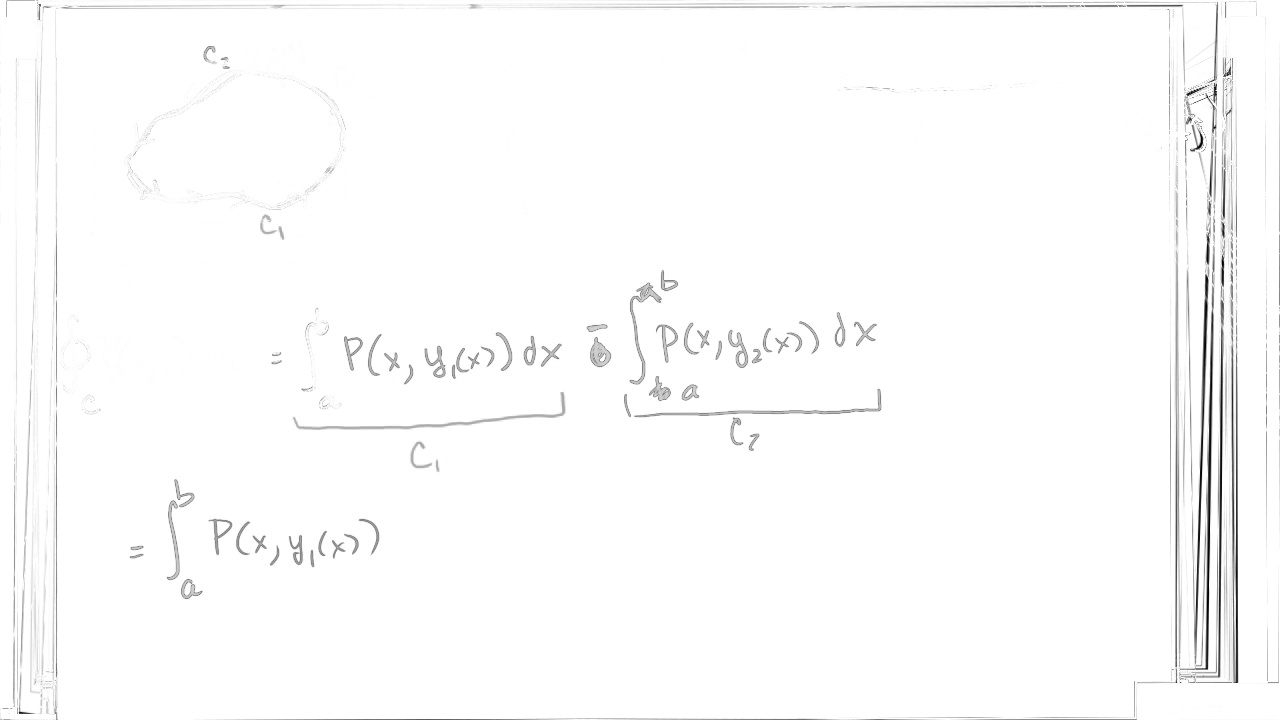 C₂
C₁
= ∫ₐᵇ P(x, y₁(x)) dx - ∫ₐᵇ P(x, y₂(x)) dx
C
C₁ C₂
= ∫ₐᵇ P(x, y₁(x))